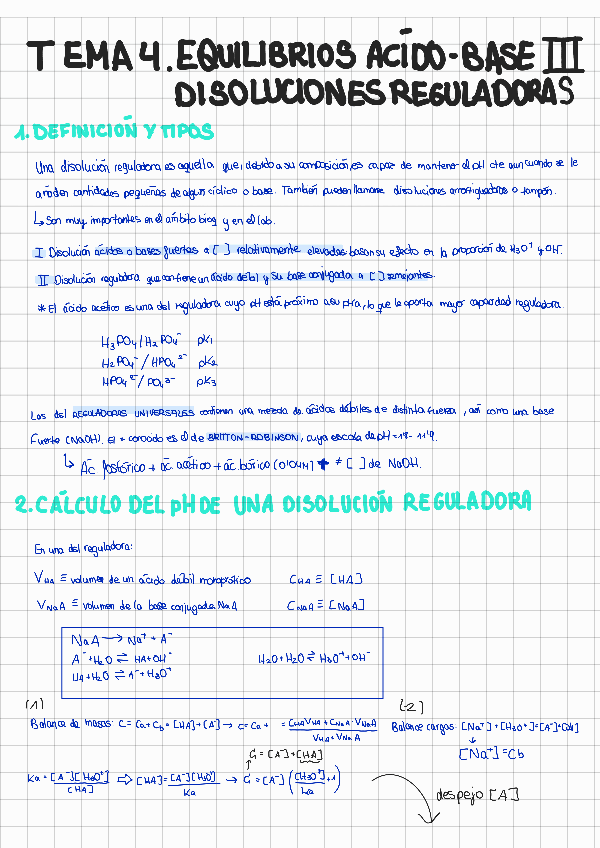 TEMA 4. EQUILIBRIOS ÁCIDO-BASE III
DISOLUCIONES REGULADORAS
1. DEFINICIÓN Y TIPOS
Una disolución reguladora es aquella que, debido a su composición, es capaz de mantener el pH cte aun cuando se le
añaden cantidades pequeñas de algún ácido o base. También pueden llamarse disoluciones amortiguadoras o tampón.
↳ Son muy importantes en el ámbito biog y en el lab.
I Disolución ácidos o bases fuertes a [ ] relativamente elevadas basan su efecto en la proporción de H₃O⁺ y OH⁻.
II Disolución reguladora que contiene un ácido débil y su base conjugada a [ ] semejantes.
* El ácido acético es una dsl reguladora cuyo pH está próximo a su pKa, lo que le aporta mayor capacidad reguladora.
H₃PO₄/H₂PO₄⁻ pK₁
H₂PO₄⁻/HPO₄²⁻ pK₂
HPO₄²⁻/PO₄³⁻ pK₃
Las dsl REGULADORAS UNIVERSALES contienen una mezcla de ácidos débiles de distinta fuerza, así como una base
fuerte (NaOH). El + conocido es el de BRITTON-ROBINSON, cuya escala de pH = 1'8 - 11'9.
↳ Ác fosfórico + ác. acético + ác bórico (0'04M) + ≠ [ ] de NaOH.
2. CÁLCULO DEL pH DE UNA DISOLUCIÓN REGULADORA
En una dsl reguladora:
V_HA ≡ volumen de un ácido débil monoprótico C_HA ≡ [HA]
V_NaA ≡ volumen de la base conjugada NaA C_NaA ≡ [NaA]
NaA → Na⁺ + A⁻
A⁻ + H₂O ⇌ HA + OH⁻ H₂O + H₂O ⇌ H₃O⁺ + OH⁻
HA + H₂O ⇌ A⁻ + H₃O⁺
(1) (2)
Balance de masas: C = Ca + Cb = [HA] + [A⁻] → C = Ca + = (C_HA V_HA + C_NaA · V_NaA) / (V_HA + V_NaA) Balance cargas: [Na⁺] + [H₃O⁺] = [A⁻] + [OH⁻]
C = [A⁻] + [HA] [Na⁺] = Cb
Ka = [A⁻][H₃O⁺] / [HA] ⇨ [HA] = [A⁻][H₃O⁺] / Ka → C = [A⁻] ([H₃O⁺] / Ka + 1)
despejo [A⁻]